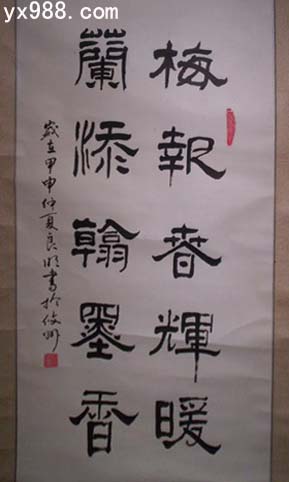 yx988.com
梅報春輝暖
蘭添翰墨香
歲在甲申仲夏良明書於徐州